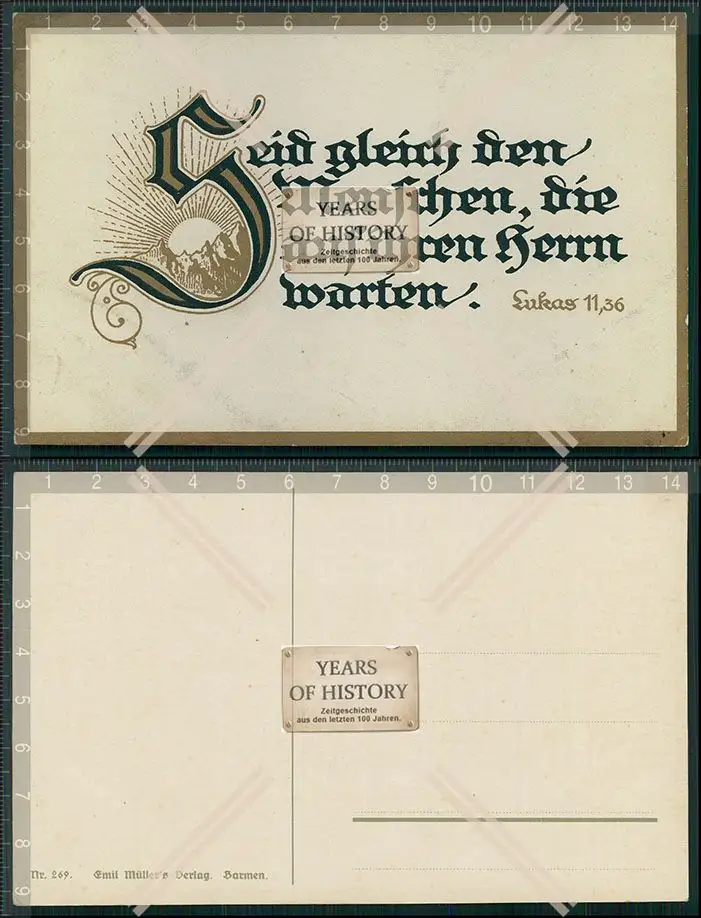 1 2 3 4 5 6 7 8 9 10 11 12 13 14
1
2
3
4
5
6
7
8
9
Seid gleich den
Menschen, die
ren Herrn
warten.
Lukas 11,36
YEARS
OF HISTORY
Zeitgeschichte
aus den letzten 100 Jahren.
1 2 3 4 5 6 7 8 9 10 11 12 13 14
1
2
3
4
5
6
7
8
9
YEARS
OF HISTORY
Zeitgeschichte
aus den letzten 100 Jahren.
Nr. 269. Emil Müller's Verlag. Barmen.